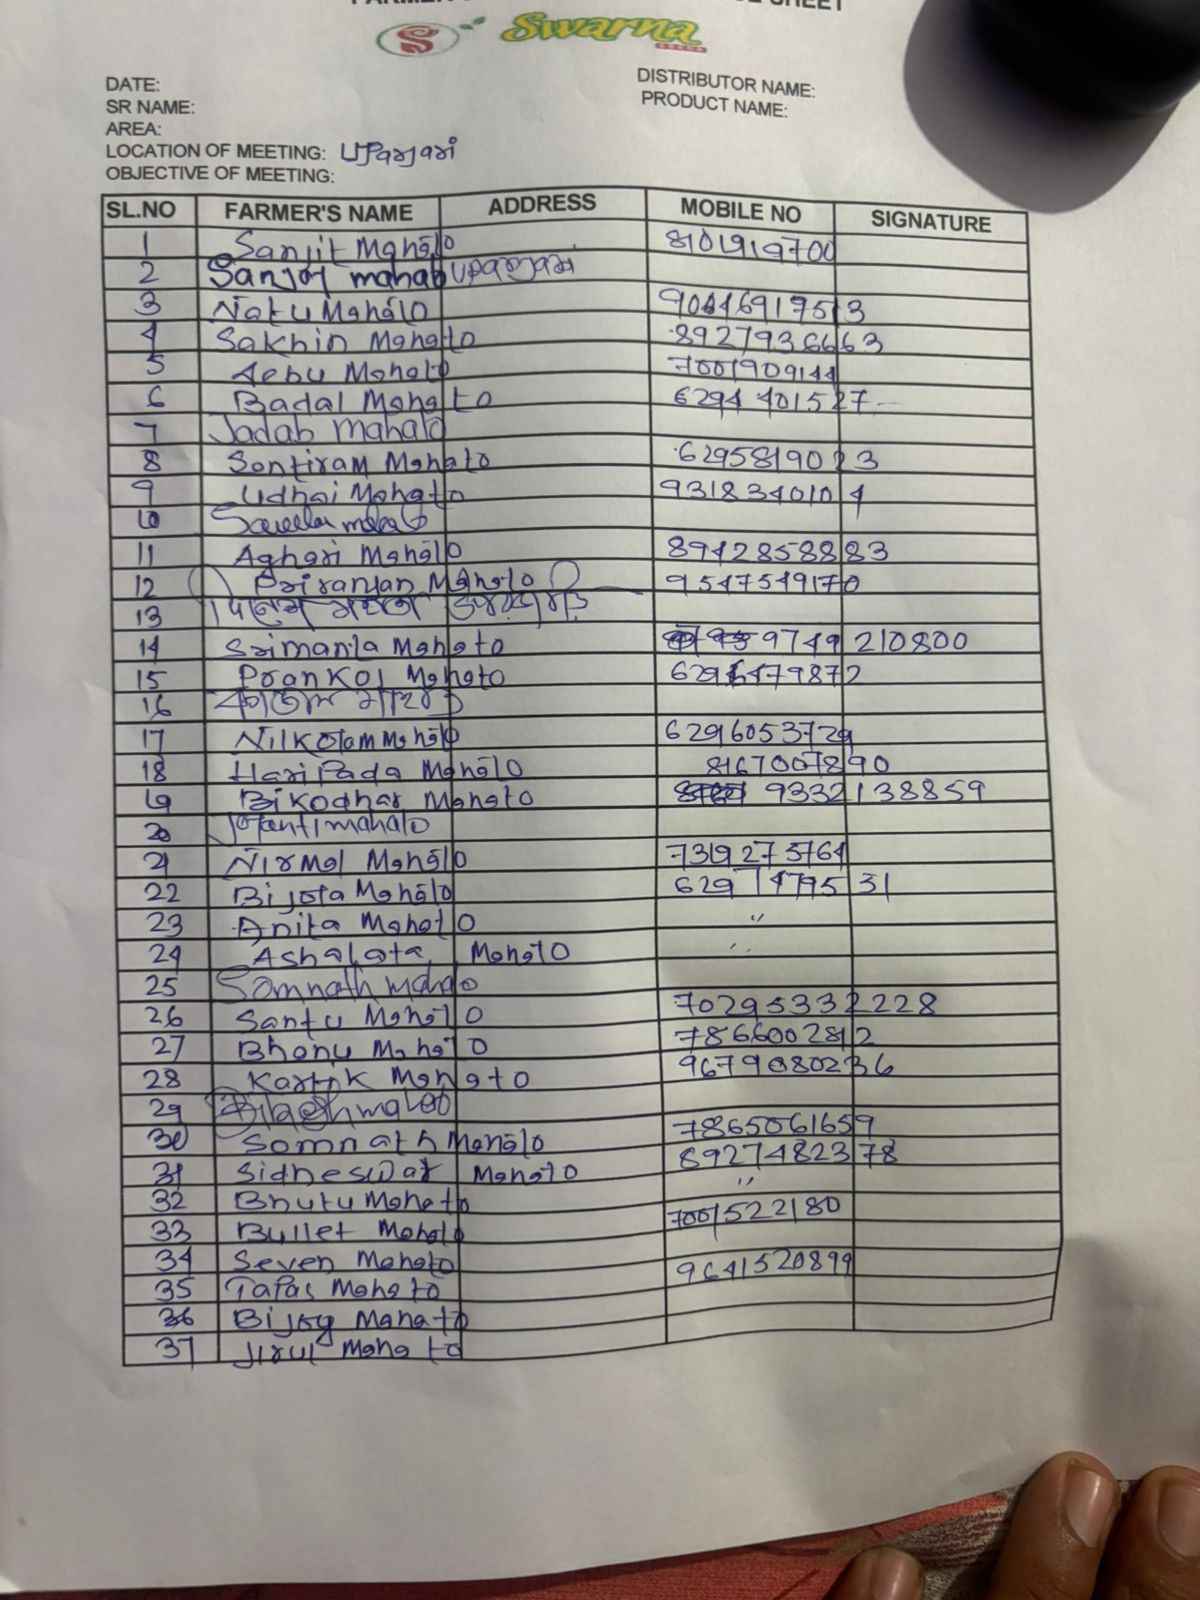 SHEET
Swarna
DATE:
DISTRIBUTOR NAME:
SR NAME:
PRODUCT NAME:
AREA:
LOCATION OF MEETING: Uparjari
OBJECTIVE OF MEETING:
SL.NO FARMER'S NAME ADDRESS MOBILE NO SIGNATURE
1 Sanjit Mahato 8101919700
2 Sanjoy mahato uparjari
3 Natu Mahato
4 Sakhin Mahato 8927936663
5 Mahato 7001909144
6 Badal Mahato 6294401527
7 Jadab Mahato
8 Santiram Mahato 6295819023
9 Udhai Mahato 9318340104
10
11 Aghari Mahato 8942858883
12 Priranjan Mahato 9547549170
13
14 Srimanta Mahato 9749210800
15 Prankoj Mahato
16
17 Nilkotam Mahato 6296053729
18 Haripada Mahato 8167007890
19 Bikodhar Mahato 9332138859
20 Jayanti mahato
21 Nirmal Mahato 7319275764
22 Bijota Mahato 6297477531
23 Anita Mahato "
24 Ashalata Mahato "
25 Somnath Mahato
26 Santu Mahato 70295332228
27 Bhanu Mahato 7866002812
28 Kartik Mahato 9679080236
29
30 Somnath Mahato 7865061659
31 Sidheswar Mahato 8927482378
32 Bhutu Mahato "
33 Bullet Mahato 7001522180
34 Seven Mahato
35 Tapas Mahato 9641520899
36 Bijoy Mahato
37 Jirul Mahato